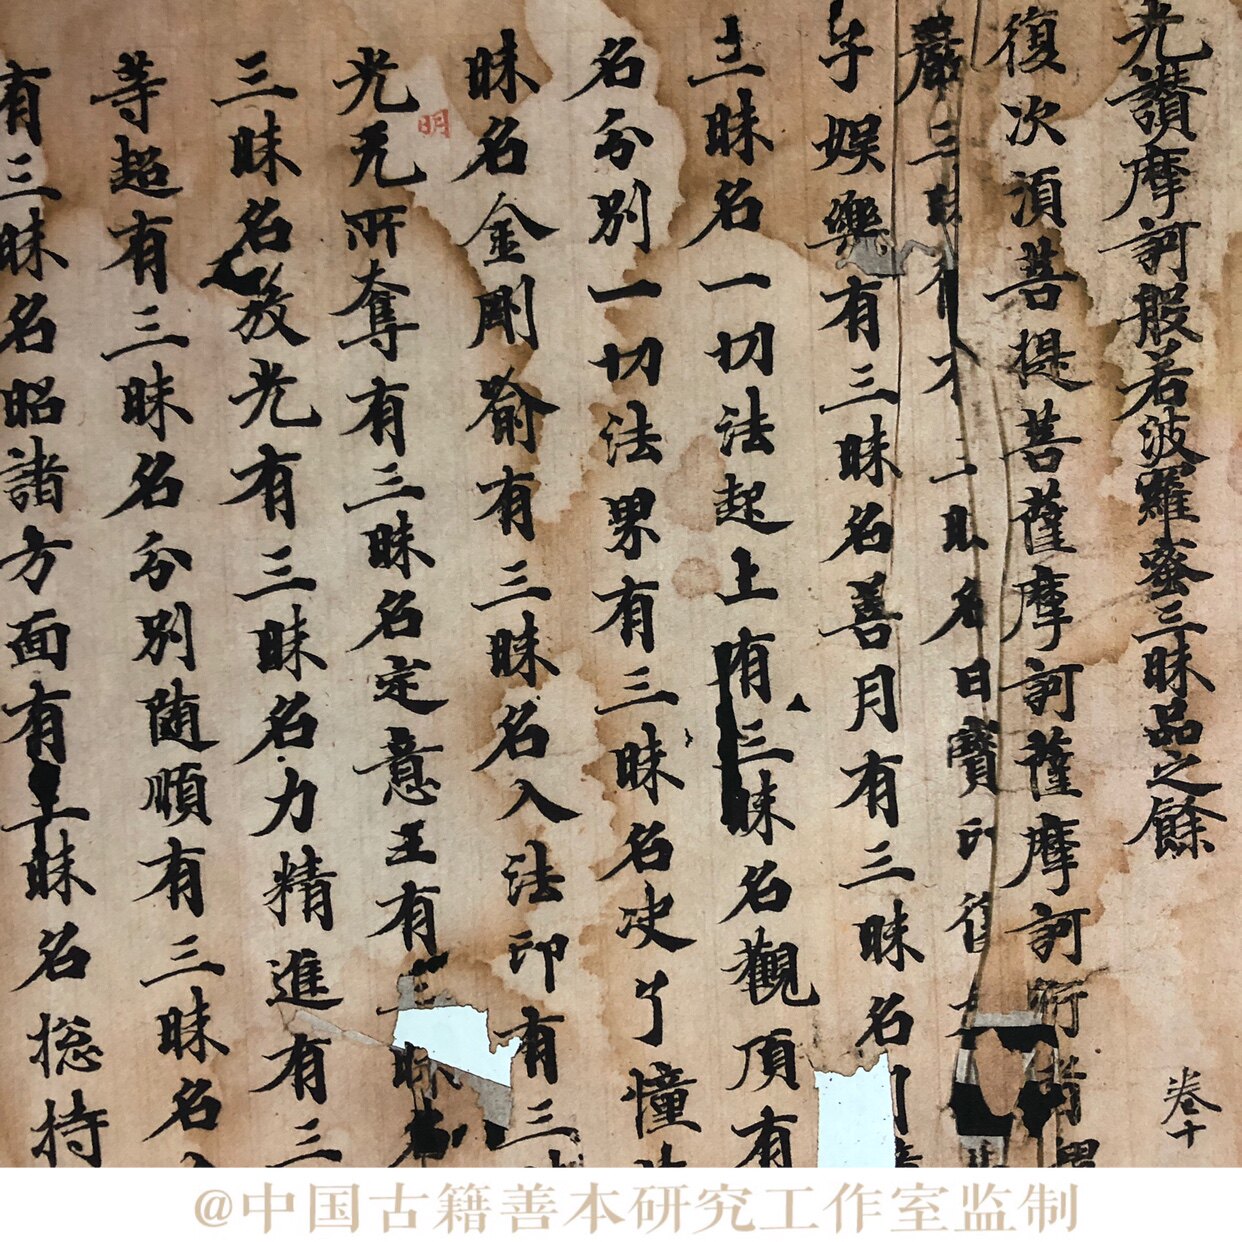 光讚摩訶般若波羅蜜三昧品之餘 卷十
復次須菩提菩薩摩訶薩摩訶衍者
嚴三昧有 三昧名曰寶印復有
子娛樂有三昧名善月有三昧名
三昧名一切法起上有三昧名觀頂有
名分别一切法界有三昧名决了憧
昧名金剛喻有三昧名入法印有三
光无所奪有三昧名定意王有三昧名
明
三昧名放光有三昧名力精進有三
等超有三昧名分别随順有三昧名入
有三昧名昭諸方面有三昧名揔持
@中国古籍善本研究工作室监制